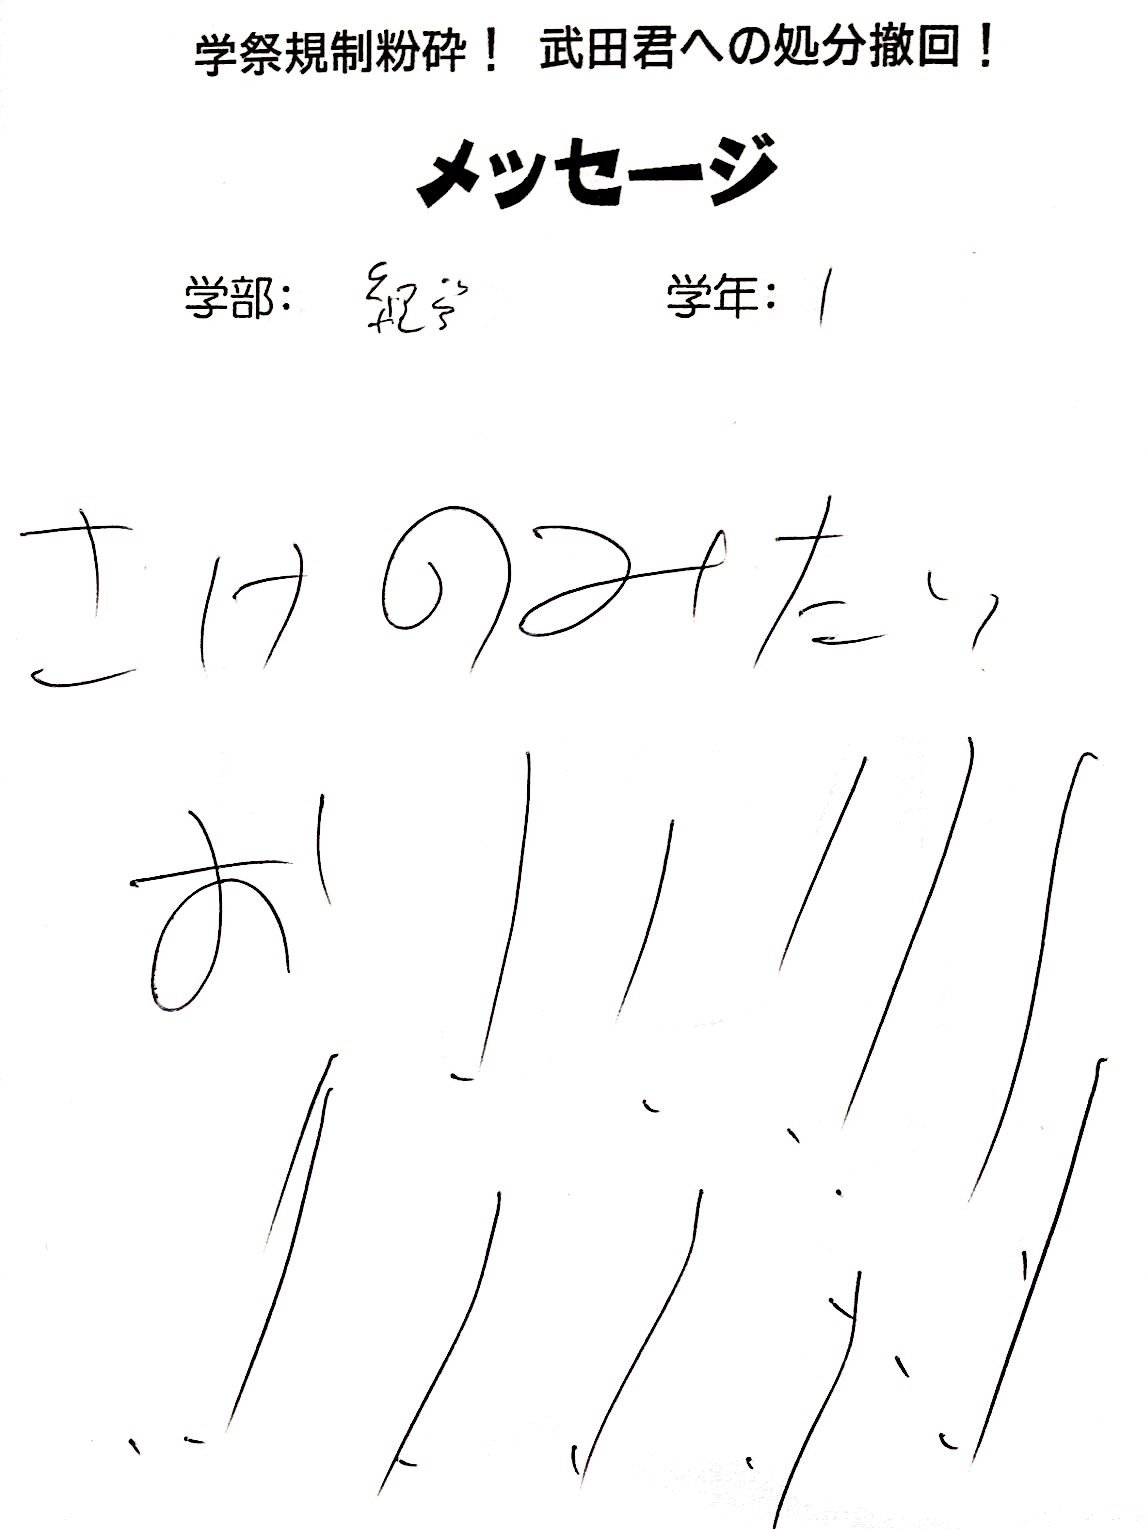 学祭規制粉砕！ 武田君への処分撤回！
メッセージ
学部： 経営 学年： 1
さけのみたい
お!!!!!
!!!!!